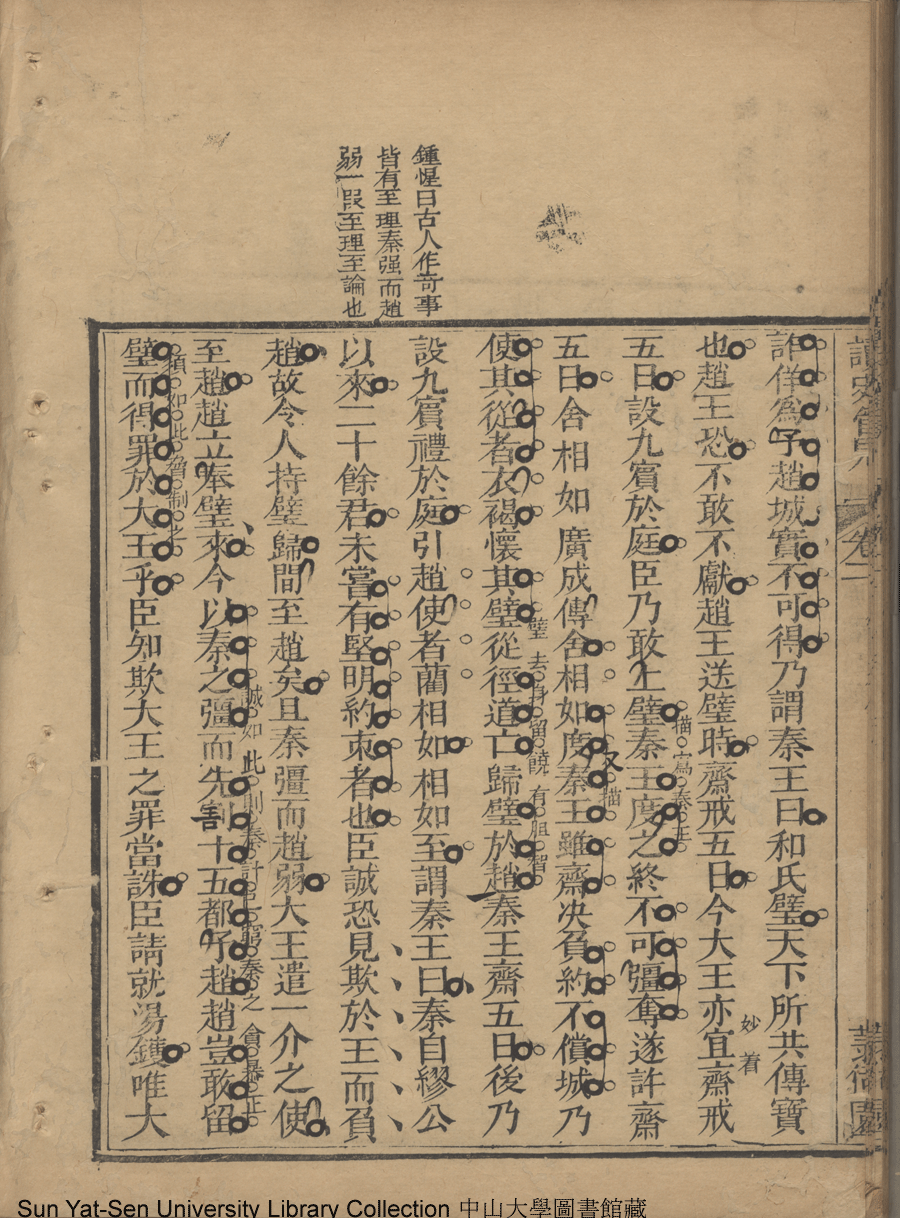 鍾惺曰古人作奇事
皆有至理秦强而趙
弱一段至理至論也
詐佯爲予趙城實不可得乃謂秦王曰和氏璧天下所共傳寶
也趙王恐不敢不獻趙王送璧時齋戒五日今大王亦宜齋戒
妙着
五日設九賓於庭臣乃敢上璧秦王度之終不可彊奪遂許齋
描寫秦王
五日舍相如廣成傳舍相如度秦王雖齋决負約不償城乃
又描
使其從者衣褐懷其璧從徑道亡歸璧於趙秦王齋五日後乃
璧去身留饒有胆智
設九賓禮於庭引趙使者藺相如相如至謂秦王曰秦自繆公
以來二十餘君未嘗有堅明約束者也臣誠恐見欺於王而負
趙故令人持璧歸間至趙矣且秦彊而趙弱大王遣一介之使
至趙趙立奉璧來今以秦之彊而先割十五都予趙趙豈敢留
誠如此則秦計已窮秦之貪暴正
璧而得罪於大王乎臣知欺大王之罪當誅臣請就湯鑊唯大
須如此脅制之
讀史
卷二
Sun Yat-Sen University Library Collection 中山大學圖書館藏